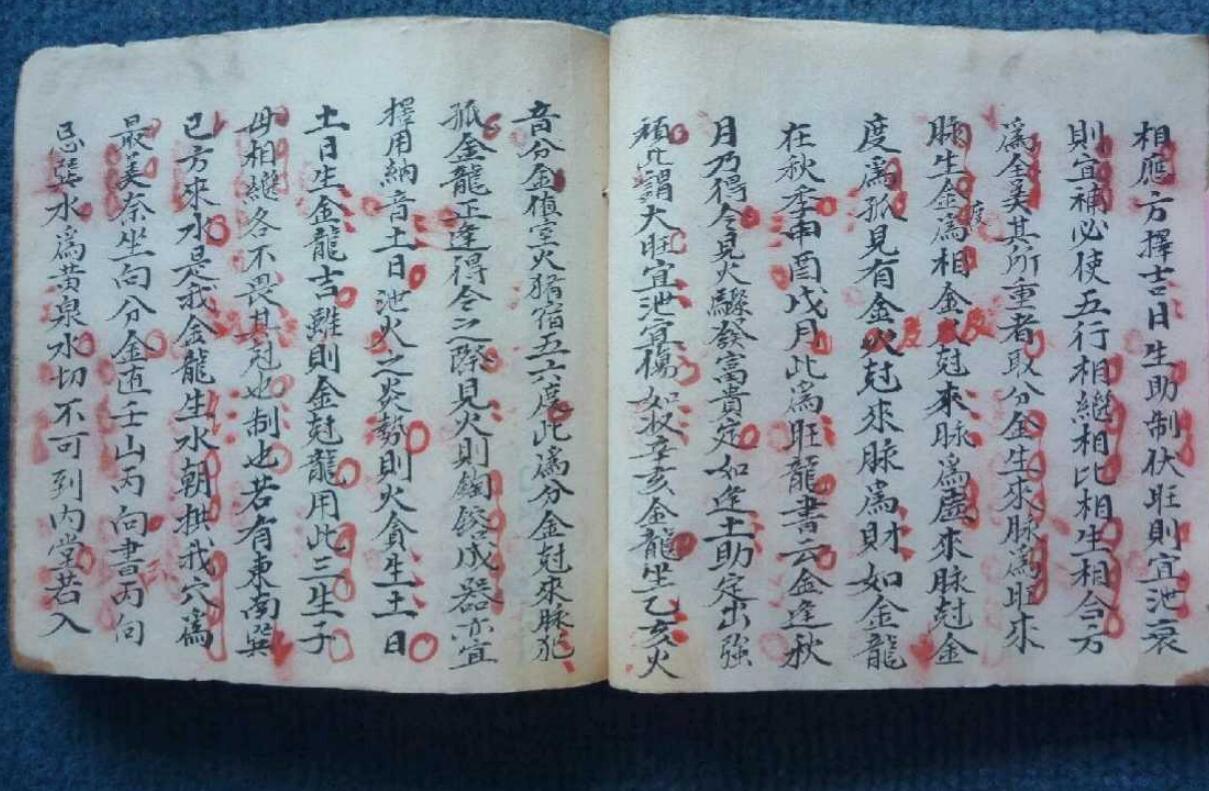 相應方擇吉日生助制伏旺則宜泄衰
則宜補必使五行相繼相比相生相合方
爲全美其所重者取分金生來脉爲旺來
脉生金爲相金度尅來脉爲虛來脉尅金
度爲孤見有金度尅來脉爲財如金龍
在秋季申酉戌月此爲旺龍書云金逢秋
月乃得令見火驟發富貴定如逢土助定出強
頑此謂大旺宜泄宜傷如收辛亥金龍坐乙亥火
音分金值室火猪宿五六度此爲分金尅來脉犯
孤金龍正逢得令之際見火則鎔成器亦宜
擇用納音土日泄火之炎勢則火貪生土日
土日生金龍吉雖則金尅龍用此三生子
母相繼各不畏其尅也制也若有東南巽
巳方來水是我金龍生水朝拱我穴爲
最美奈坐向分金直壬山丙向書丙向
忌巽水爲黃泉水切不可到内堂若入